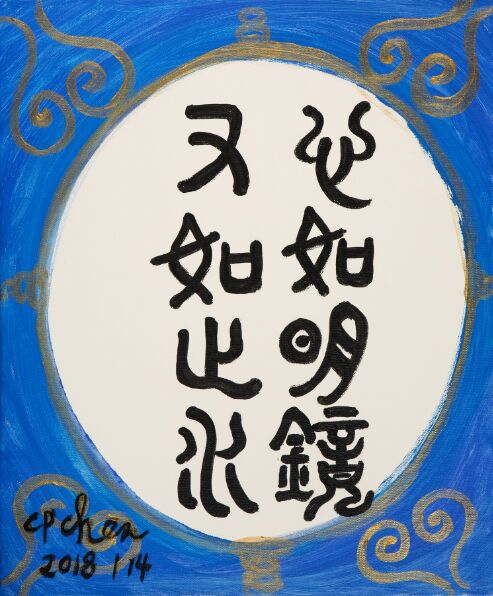 心如明鏡
又如止水
CP Chen
2018 1 14